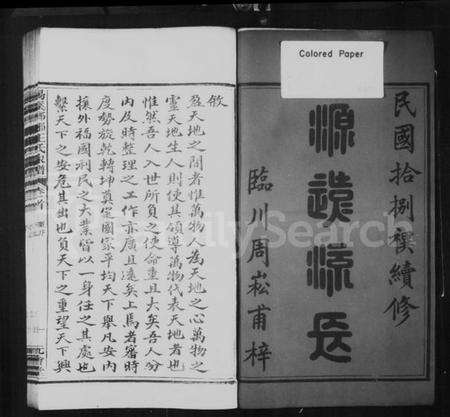 Colored Paper
民國拾捌稷續修
源遠流長
臨川周崧甫梓
敘
盈天地之間者惟萬物人為天地之心萬物之
靈天地生人則使其領導萬物代表天地者也
惟然吾人入世所負之使命重且大矣吾人分
內及時整理之工作亦廣且遠矣上焉者審時
度勢旋乾轉坤奠定國家平均天下舉凡安內
攘外福國利民之大業皆以一身任之其處也
繫天下之安危其出也負天下之重望天下興
FamilySearch